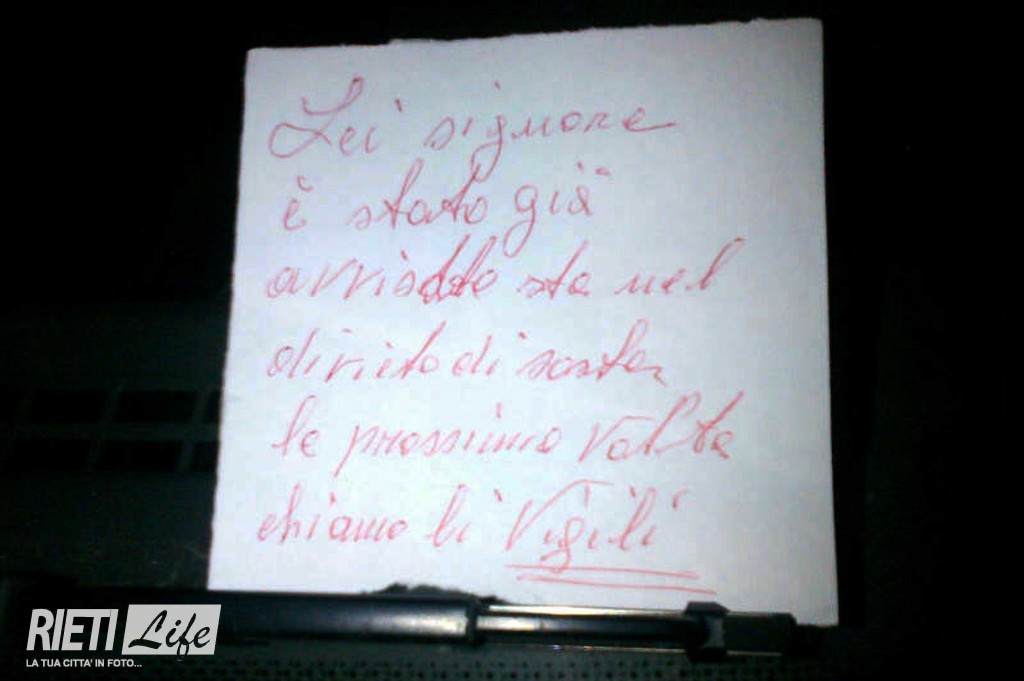 Lei signore
è stato già
avvisato sta nel
divieto di sosta
la prossima Volta
chiamo li Vigili
RIETI Life
LA TUA CITTA' IN FOTO...